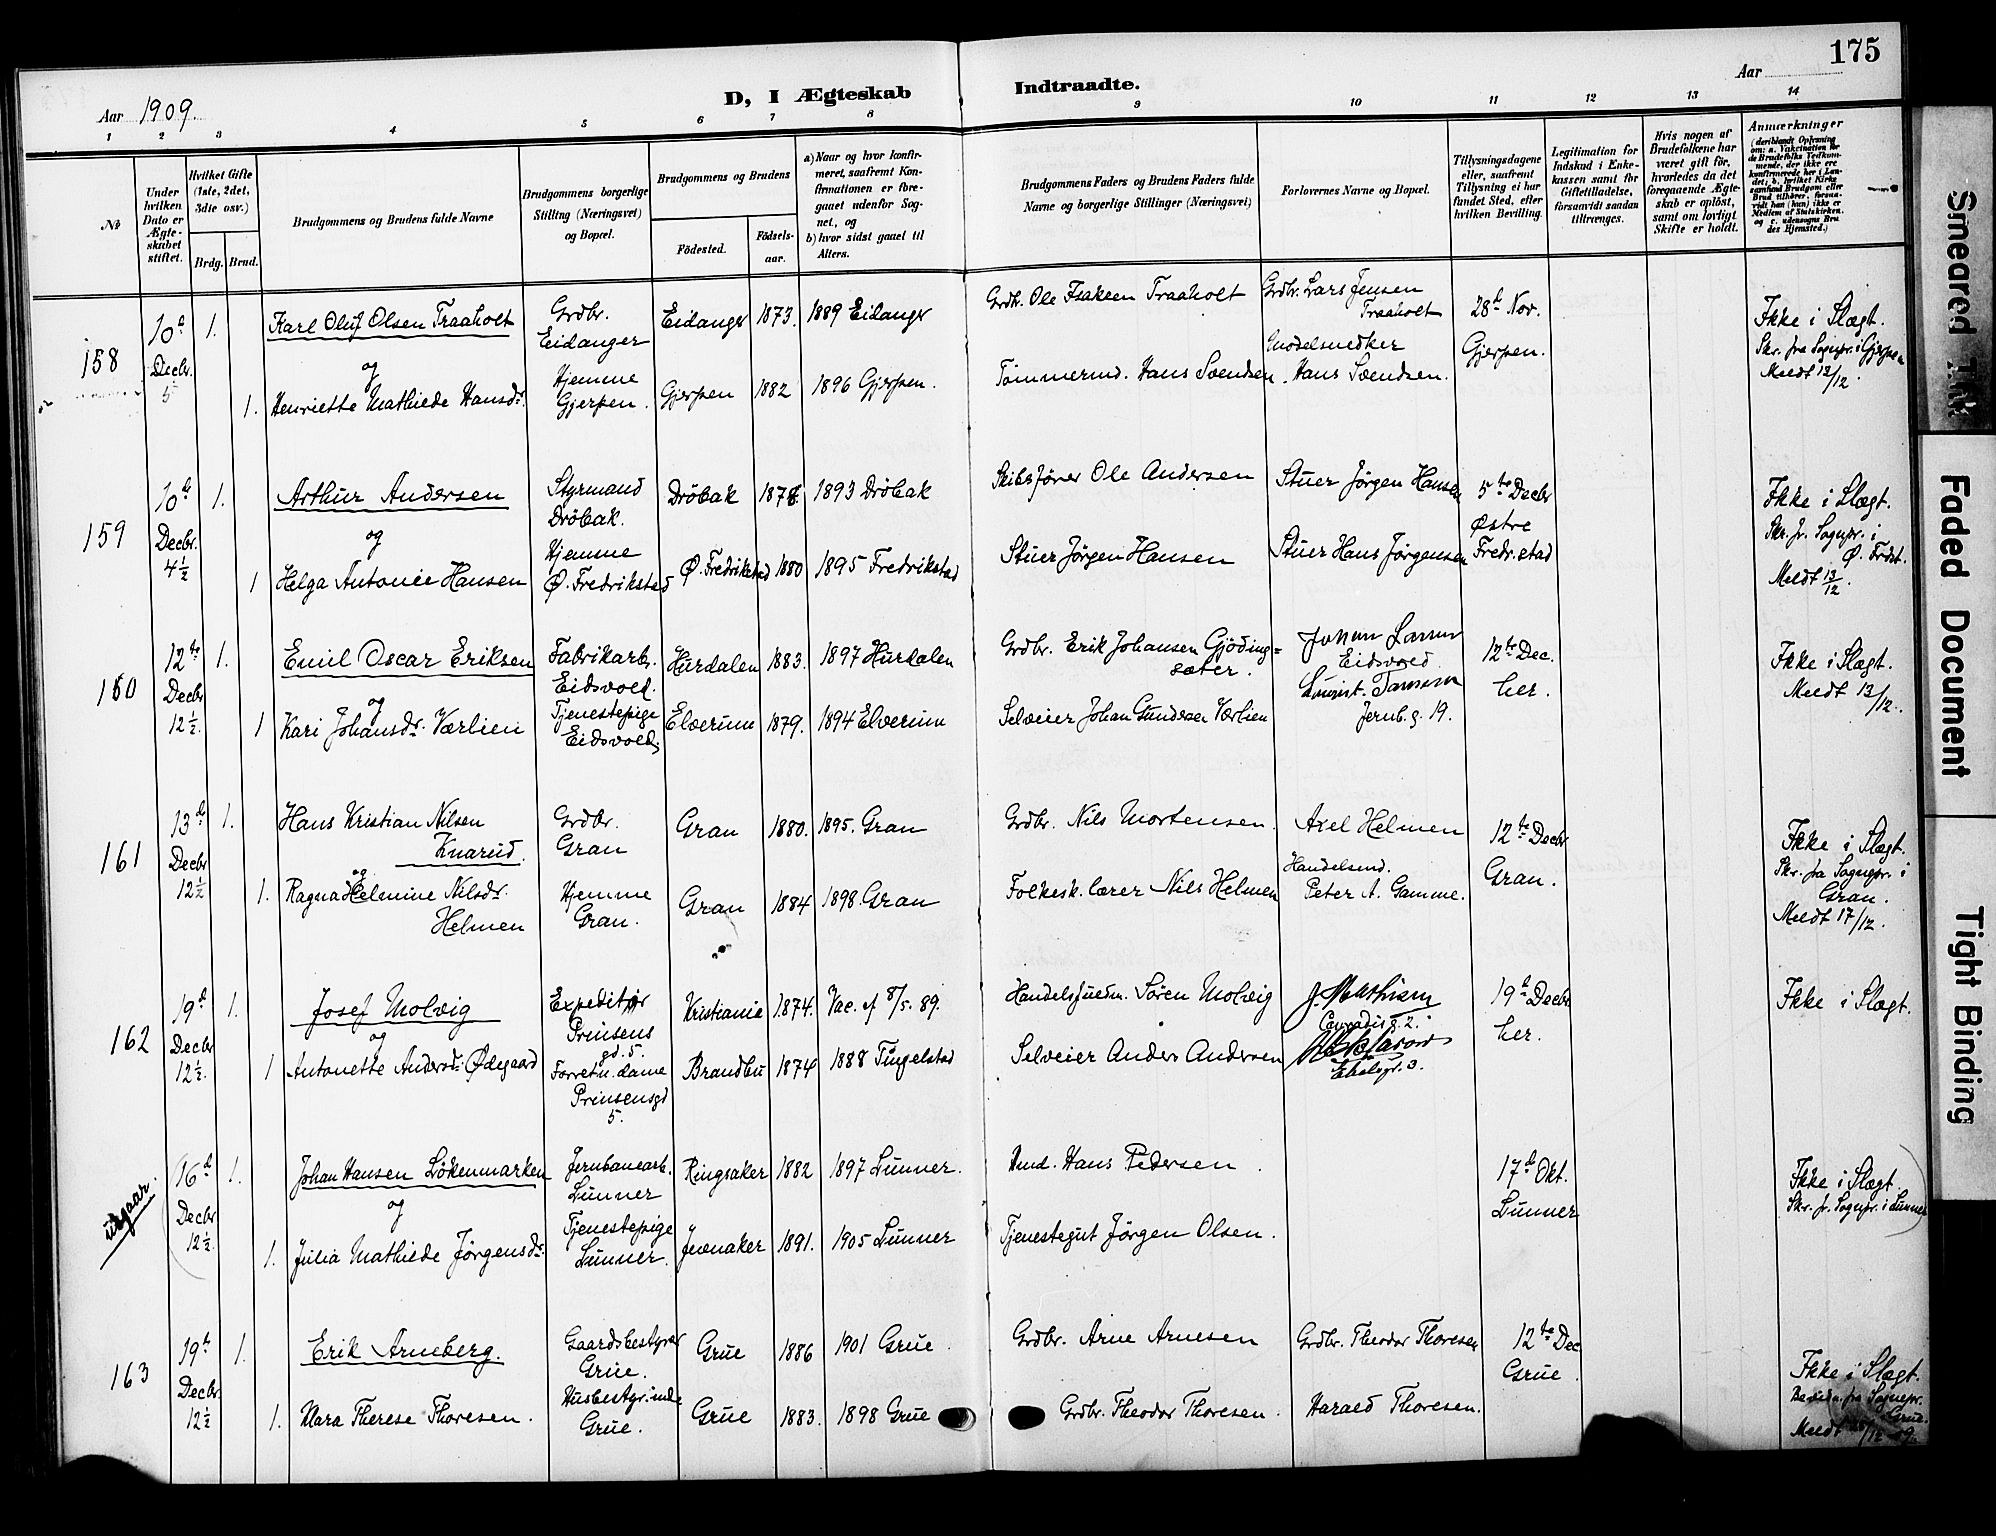 175
Aar 1909.
D, I Ægteskab Indtraadte.
Aar
1 2 3 4 5 6 7 8 9 10 11 12 13 14
№
Under hvilken Dato er Ægteskabet stiftet.
Hvilket Gifte (1ste, 2det, 3die osv.)
Brdg. Brud.
Brudgommens og Brudens fulde Navne
Brudgommens borgerlige Stilling (Næringsvei) og Bopæl.
Brudgommens og Brudens
Födested.
Födselsaar.
a) Naar og hvor konfirmeret, saafremt Konfirmationen er foregaaet udenfor Sognet, og
b) hvor sidst gaaet til Alters.
Brudgommens Faders og Brudens Faders fulde Navne og borgerlige Stillinger (Næringsvei)
Forlovernes Navne og Bopæl.
Tillysningsdagene eller, saafremt Tillysning ei har fundet Sted, efter hvilken Bevilling.
Legitimation for Indskud i Enkekassen samt for Giftetilladelse, forsaavidt saadan tiltrænges.
Hvis nogen af Brudefolkene har været gift før, hvorledes da det foregaaende Ægteskab er opløst, samt om lovligt Skifte er holdt.
Anmærkninger
158
10d Decbr. 5
1.
Karl Oluf Olsen Traaholt
og
1. Henriette Mathilde Hansdr.
Grdbr. Eidanger
Hjemme Gjerpen.
Eidanger 1873. 1889 Eidanger
Gjerpen 1882 1896 Gjerpen.
Grdbr. Ole Isaksen Traaholt
Tømmermd. Hans Svendsen
Grdbr. Lars Jensen Traaholt
Modelsnedker Hans Svendsen.
28d Nov. Gjerpen.
Ikke i Slægt.
Skr. fra Sognepr. i Gjerpen
Meldt 13/12.
159
10de Decbr. 4½
1.
Arthur Andersen
og
1 Helga Antonie Hansen
Styrmand Drøbak.
Hjemme Ø. Fredrikstad
Drøbak 1878 1893 Drøbak
Ø. Fredrikstad 1880 1895 Fredrikstad
Skibsfører Ole Andersen
Stuer Jørgen Hansen
Stuer Jørgen Hansen
Stuer Hans Jørgensen
5te Decbr Østre Fredr.stad
Ikke i Slægt.
Skr. fr. Sognepr. i
Ø. Frdst.
Meldt 13/12.
160
12te Decbr 12½.
1.
Emil Oscar Eriksen
og
1 Kari Johansdr. Værlien
Fabrikarb. Eidsvold.
Tjenestepige Eidsvold
Hurdalen 1883. 1897 Hurdalen
Elverum 1879. 1894 Elverum
Grdbr. Erik Johansen Gjødingsæter.
Selveier Johan Gundersen Værlien
Johan Larsen
Eidsvold
Jernb.g. 19.
12te Dec. her.
Ikke i Slægt.
Meldt 13/12.
161
13d Decbr 12½
1.
Hans Kristian Nilsen
Knarud.
og
1. Ragna Helmine Nilsdr.
Helmen
Grdbr. Gran
Hjemme Gran.
Gran 1880. 1895. Gran
Gran 1884 1898. Gran
Grdbr. Nils Mortensen.
Folkesk. lærer Nils Helmen
Axel Helmen
Handelsmd.
Peter A. Gamme.
12te Decbr Gran.
Ikke i Slægt.
Skr. fra Sognepr. i
Gran.
Meldt 17/12.
162
19d Decbr 12½.
1.
Josef Molvig
og
1 Antonette Andersd. Ødegaard
Expeditør Prinsens gd. 5.
Forretn. dame Prinsensgd 5.
Kristiania 1874. Vac. ef 8/5. 89.
Brandbu 1874 1888 Tingelstad
Handelsfuldm. Søren Molvig
Selveier Anders Andersen
J. Mathisen
Conradis g. 2.
19d Decbr her.
Ikke i Slægt.
utgaar.
(16d Decbr 12½.
1.
Johan Hansen Løkenmarken
og
1. Julia Mathilde Jørgensdr.
Jernbanearb. Lunner
Tjenestepige Lunner.
Ringsaker 1882 1897 Lunner.
Jevnaker 1891. 1905 Lunner
Hmd. Hans Pedersen.
Tjenestegut Jørgen Olsen.
17d Okt. Lunner
Ikke i Slægt.
Skr. fr. Sognepr. i Lunner)
163
19d Decbr. 12½
1.
Erik Arneberg.
1. Mara Therese Thoresen.
Gaardsbestyrer Grue.
Husbestyr.inde Grue.
Grue 1886 1901 Grue.
Grue 1883. 1898 Grue
Grdbr. Arne Arnesen
Grdbr. Theodor Thoresen.
Grdbr. Theodor Thoresen
Harald Thoresen.
12te Dec Grue
Ikke i Slægt.
fra Sognepr.
Grue.
Meldt
Smeared Ink
Faded Document
Tight Binding